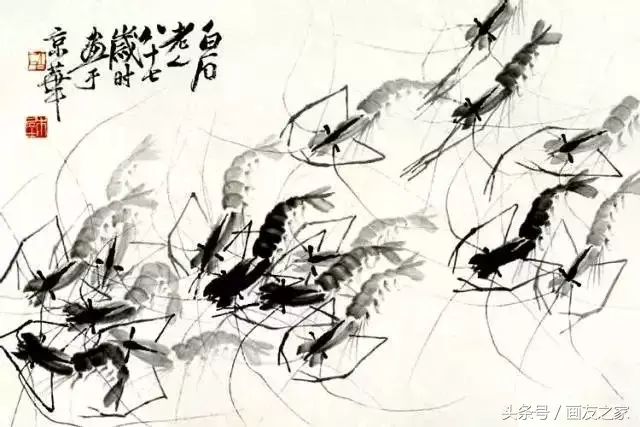 白石
老人
八十七
歲时
画于
京華
头条号／画友之家